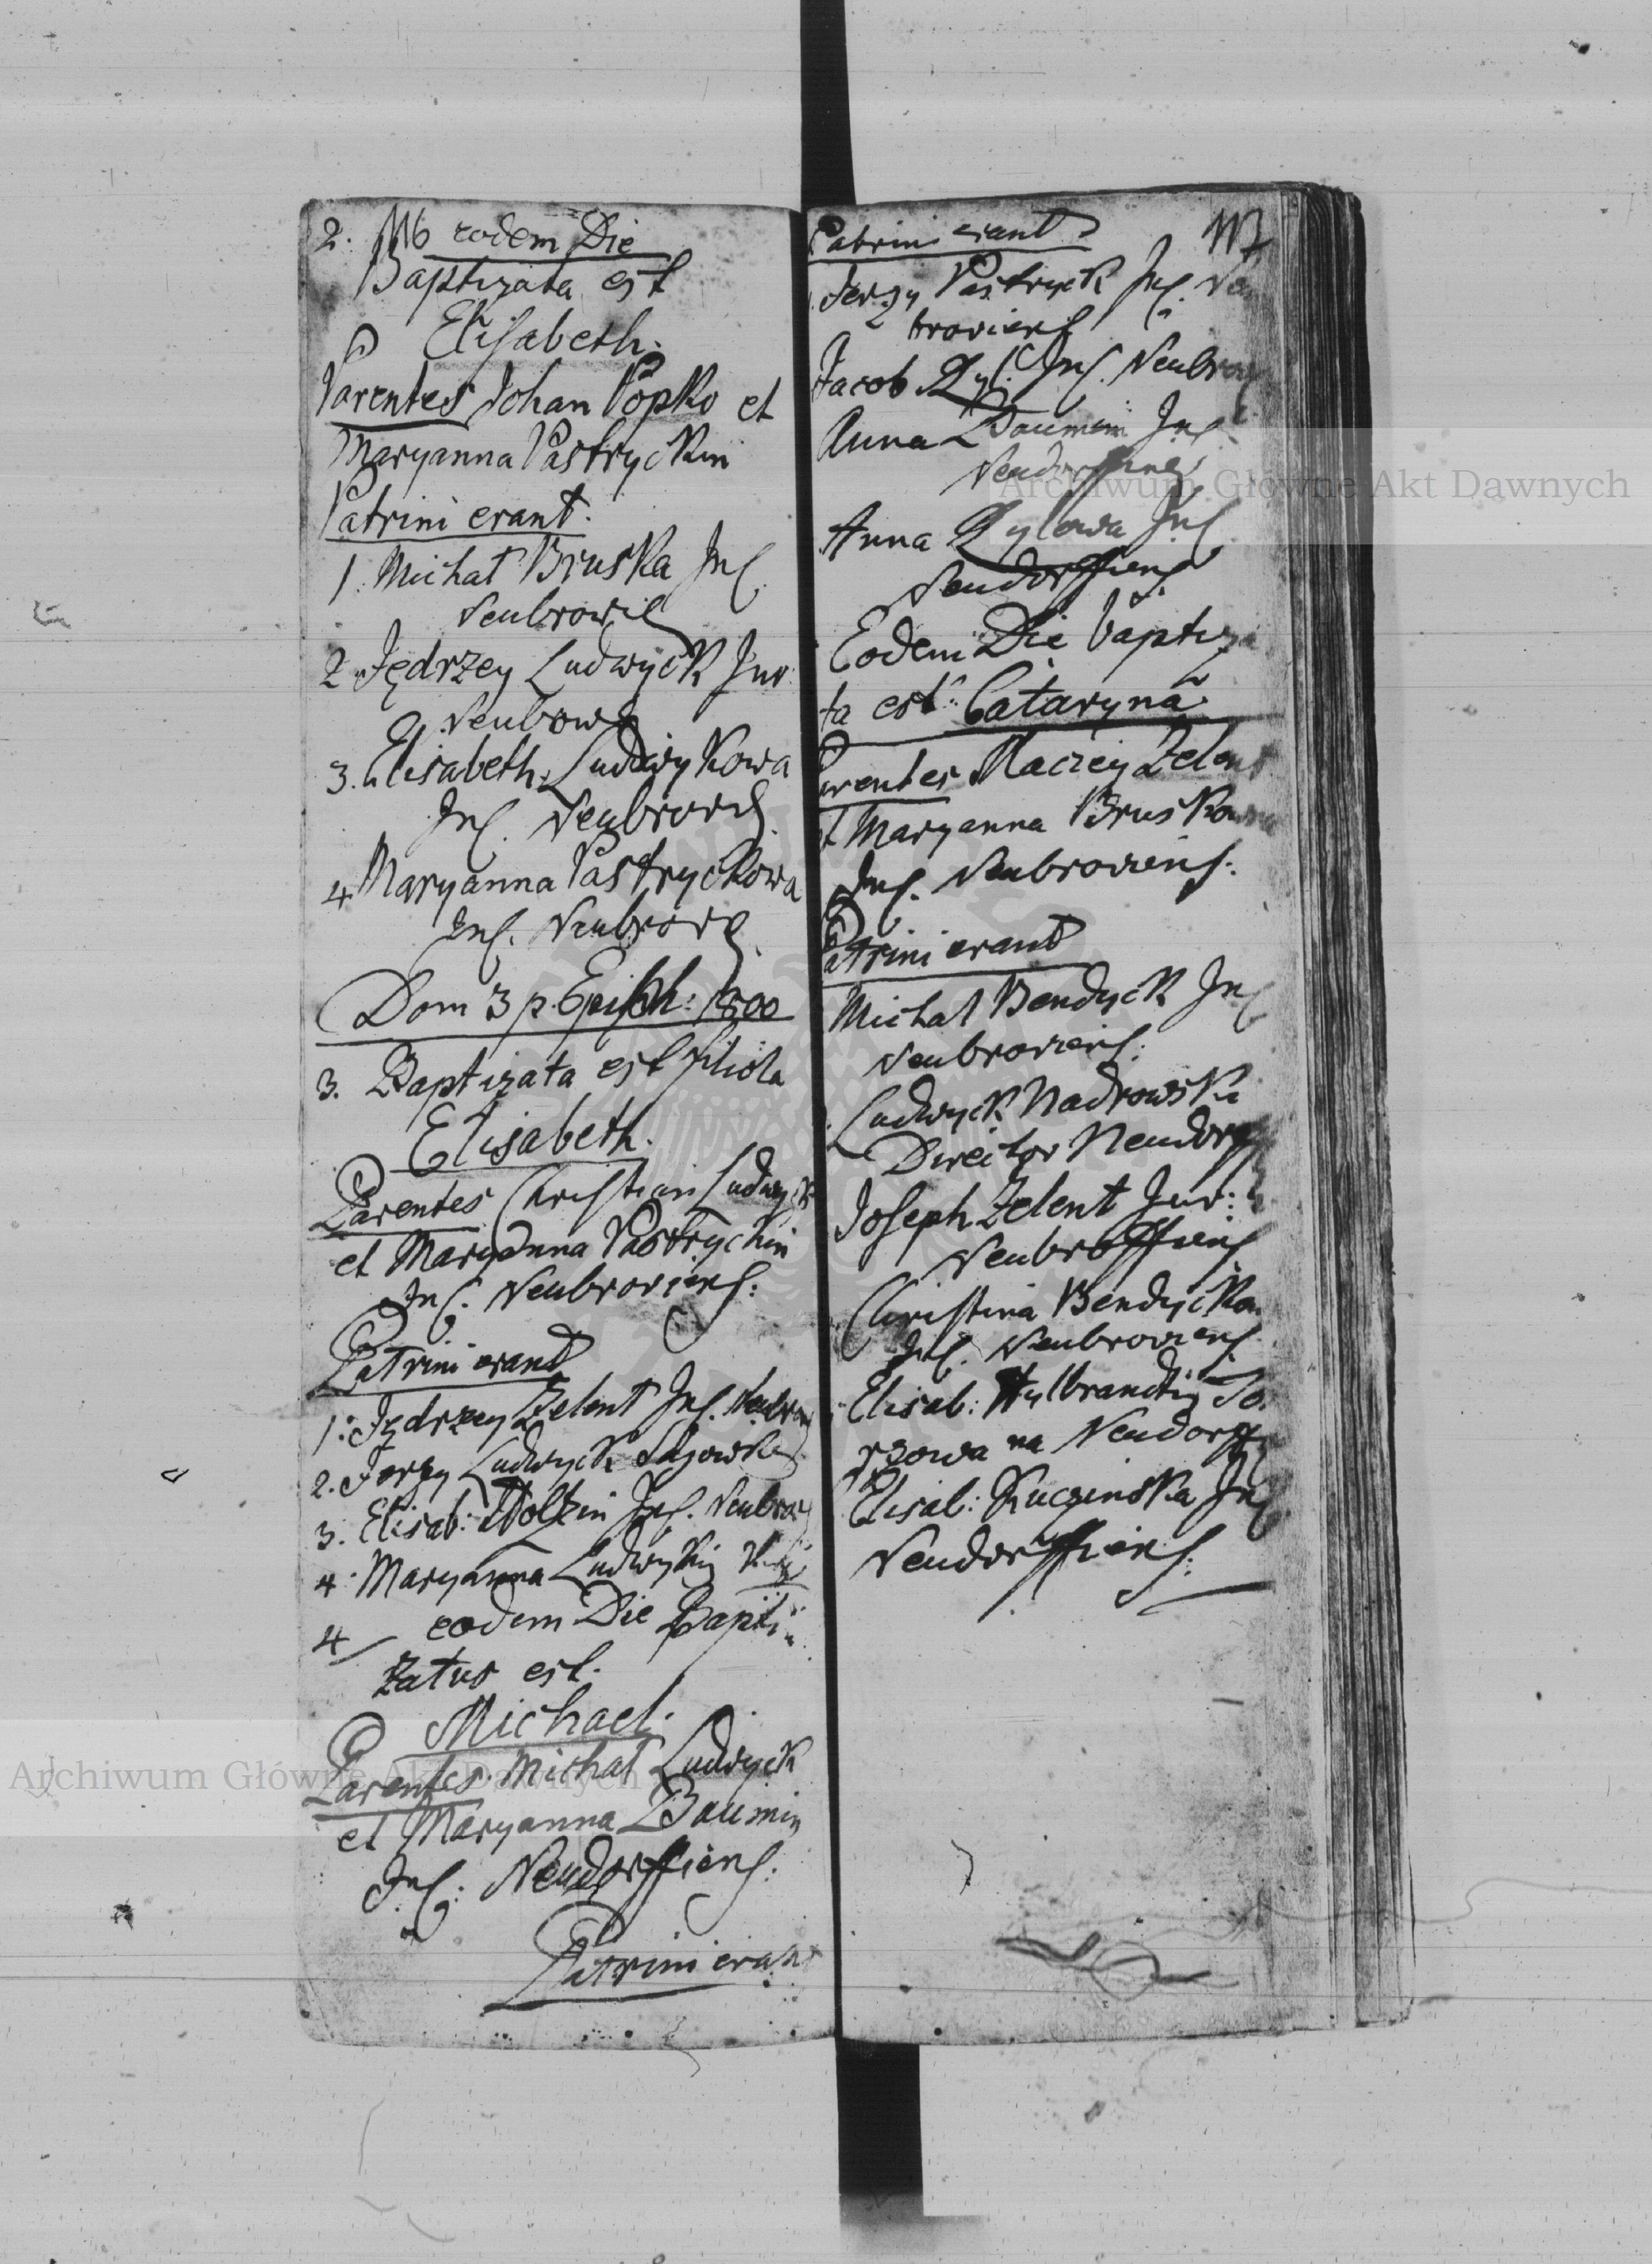 2. 116 eodem Die
Baptizata est
Elisabeth.
Parentes Johan Popko et
Maryanna Pastryckin
Patrini erant.
1. Michał Bruska Inc
Neubrowie
2 Jędrzey Ludwyck Juv
Neubow
3. Elisabeth Ludwykowa
Inc. Neubrow
4 Maryanna Pastryckowa
Inc. Neubrow
Dom 3 p Epiph: 1800
3. Baptizata est filiola
Elisabeth.
Parentes Christian Ludwyck
et Maryanna Pastrychin
Inc. Neubroviens:
Patrini erant
1: Jędrzey Zelent Inc. Neubrow
2. Jerzy Ludwyck
3. Elisab: Inc. Neubrow
4. Maryanna
4 eodem Die Bapti
zatus est.
Michael.
Parentes. Michał Ludwyck
et Maryanna Baumin
Inc: Neudorffiens:
Patrini erant
Patrini erant 117
Jerzy Pastryck Inc. Neu
broviens
Jacob Zyl. Inc. Neubrow
Anna Baumin Inc
Neudorffiens
Anna Zylowa Inc
Neudorffiens
Eodem Die baptiza
ta est: Cataryna
Parentes Maciey Zelent
et Maryanna Bruskowna
Inc. Neubroviens:
Patrini erant
Michał Bendyck Inc
Neubroviens:
Ludwyck Nadrowski
Director Neudorff
Joseph Zelent Juv:
Neubroffiens
Christina Bendycko
Inc. Neubroviens
Elisab: Hylbrandtin
na Neudorff
Elisab: Kuczinska Inc
Neudorffiens:
Archiwum Główne Akt Dawnych
Archiwum Główne Akt Dawnych